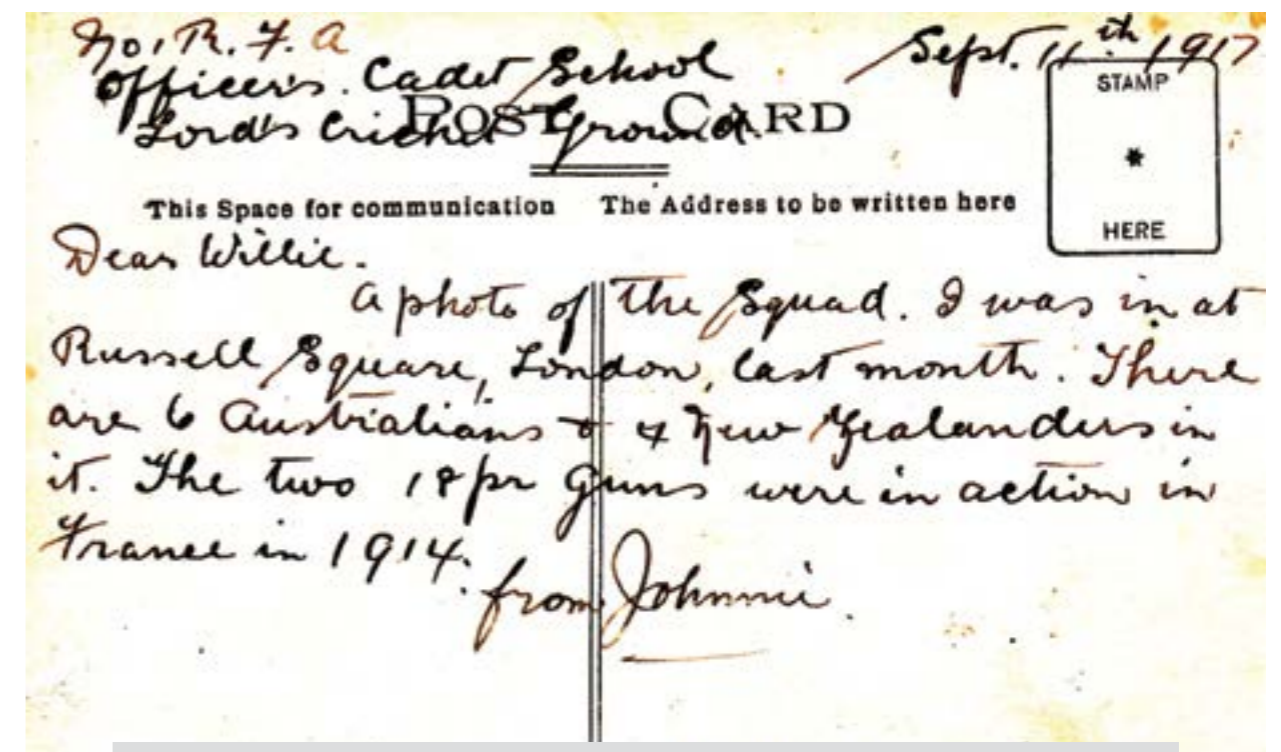 No 1 R. F. A
Officer's Cadet School
Lord's Cricket Ground.
Sept. 11th 1917
POST CARD
STAMP
*
HERE
This Space for communication
The Address to be written here
Dear Willie.
A photo of the Squad. I was in at
Russell Square, London, last month. There
are 6 Australians & 4 New Zealanders in
it. The two 18 pr Guns were in action in
France in 1914.
from Johnnie.